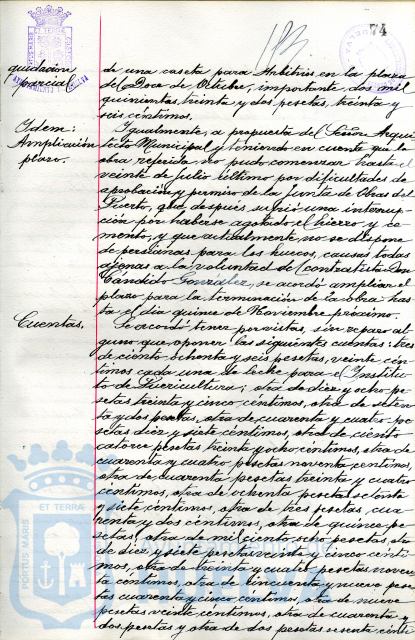 74
quidación
parcial.
de una caseta para Arbitrios en la plaza
del Doce de Octubre, importante dos mil
quinientas treinta y dos pesetas, treinta y
seis céntimos.
Idem:
Ampliación
plazo.
Igualmente, a propuesta del Señor Arqui
tecto Municipal y teniendo en cuenta que la
obra referida no pudo comenzar hasta el
veinte de julio último por dificultades de
aprobación y permiso de la Junta de Obras del
Puerto, que después surgió una interrup-
ción por haberse agotado el hierro y ce-
mento, y que actualmente no se dispone
de persianas para los huecos, causas todas
ajenas a la voluntad del contratista Don
Cándido González, se acordó ampliar el
plazo para la terminación de la obra has
ta el día quince de Noviembre próximo.
Cuentas.
Se acordó tener por vistas, sin reparo al-
guno que oponer las siguientes cuentas: tres
de ciento ochenta y seis pesetas, veinte cén
timos cada una de leche para el Institu
to de Puericultura; otra de diez y ocho pe-
setas treinta y cinco céntimos, otra de seten
ta y dos pesetas, otra de cuarenta y cuatro pe-
setas diez y siete céntimos, otra de ciento
catorce pesetas treinta y ocho céntimos, otra de
cuarenta y cuatro pesetas noventa céntimos,
otra de cuarenta pesetas treinta y cuatro
céntimos, otra de ochenta pesetas sesenta
y siete céntimos, otra de tres pesetas, cua-
renta y dos céntimos, otra de quince pe-
setas, otra de mil ciento seis pesetas, otra
de diez y siete pesetas veinte y cinco cénti-
mos, otra de treinta y cuatro pesetas noven
ta céntimos, otra de cincuenta y nueve pese
tas cuarenta y cinco céntimos, otra de nueve
pesetas veinte céntimos, otra de cuarenta y
dos pesetas y otra de dos pesetas
PORTUS MARIS
ET TERRÆ